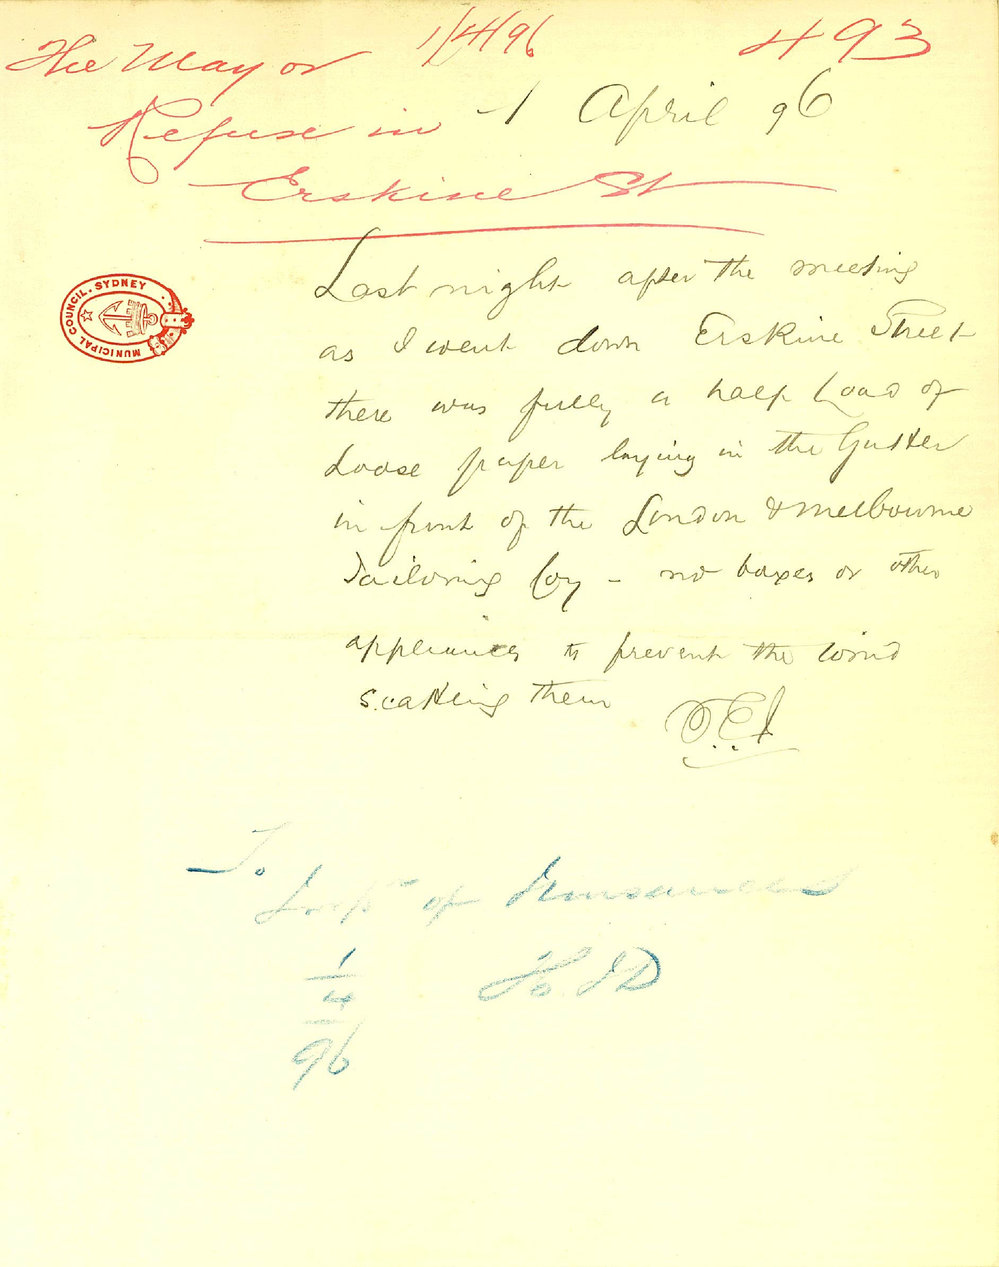 The Mayor 1/4/96 493
Refuse in
1 April 96
Erskine St
MUNICIPAL COUNCIL. SYDNEY
Last night after the meeting
as I went down Erskine Street
there was fully a half Load of
Loose paper laying in the Gutter
in front of the London & Melbourne
Tailoring Coy – no boxes or other
appliances to prevent the wind
scattering them
To
Insp of Nuisances
1/4/96